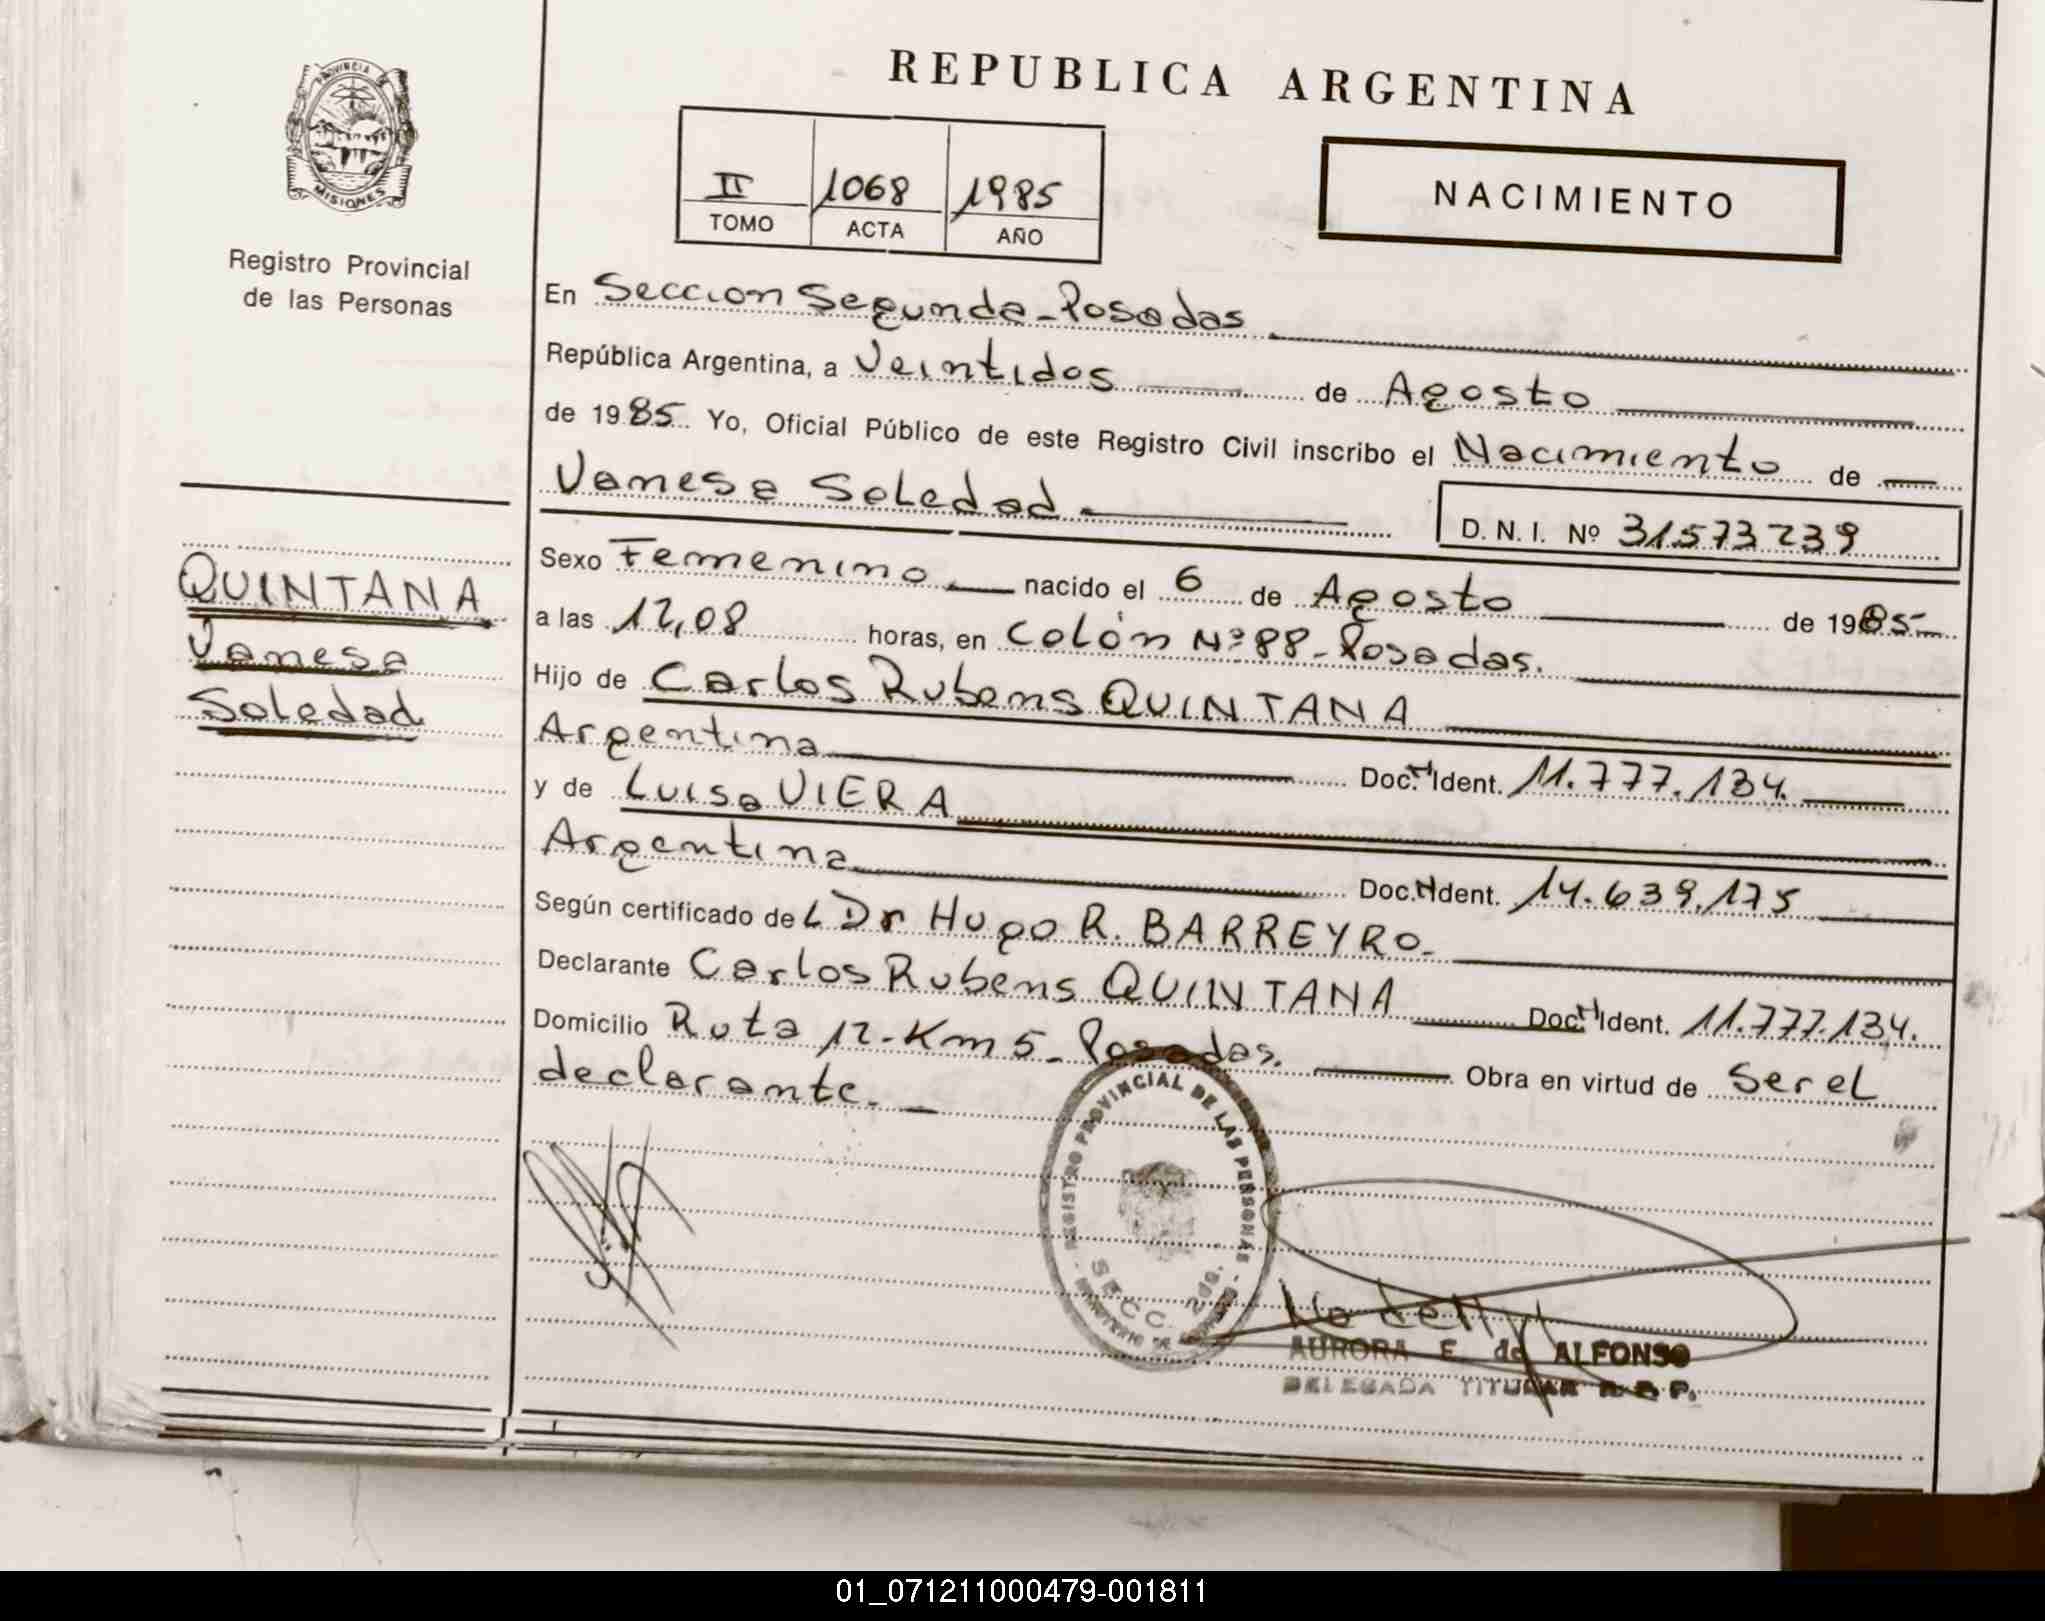 REPUBLICA ARGENTINA
PROVINCIA DE
MISIONES
Registro Provincial
de las Personas
II 1068 1985
TOMO ACTA AÑO
NACIMIENTO
En Seccion Segunda - Posadas
República Argentina, a Veintidos de Agosto
de 1985 Yo, Oficial Público de este Registro Civil inscribo el Nacimiento de
Vanesa Soledad D.N.I. Nº 31573239
QUINTANA
Vanesa
Soledad
Sexo Femenino nacido el 6 de Agosto de 1985
a las 12,08 horas, en Colón Nº 88 - Posadas.
Hijo de Carlos Rubens QUINTANA
Argentina Doc. Ident. 11.777.134.
y de Luisa VIERA
Argentina Doc. Ident. 14.639.175
Según certificado del Dr Hugo R. BARREYRO.
Declarante Carlos Rubens QUINTANA Doc. Ident. 11.777.134.
Domicilio Ruta 12 - Km 5 - Posadas. Obra en virtud de ser el
declarante.
REGISTRO PROVINCIAL DE LAS PERSONAS
SECC. 2da.
AURORA E. de ALFONSO
DELEGADA TITULAR R. P.
01_071211000479-001811